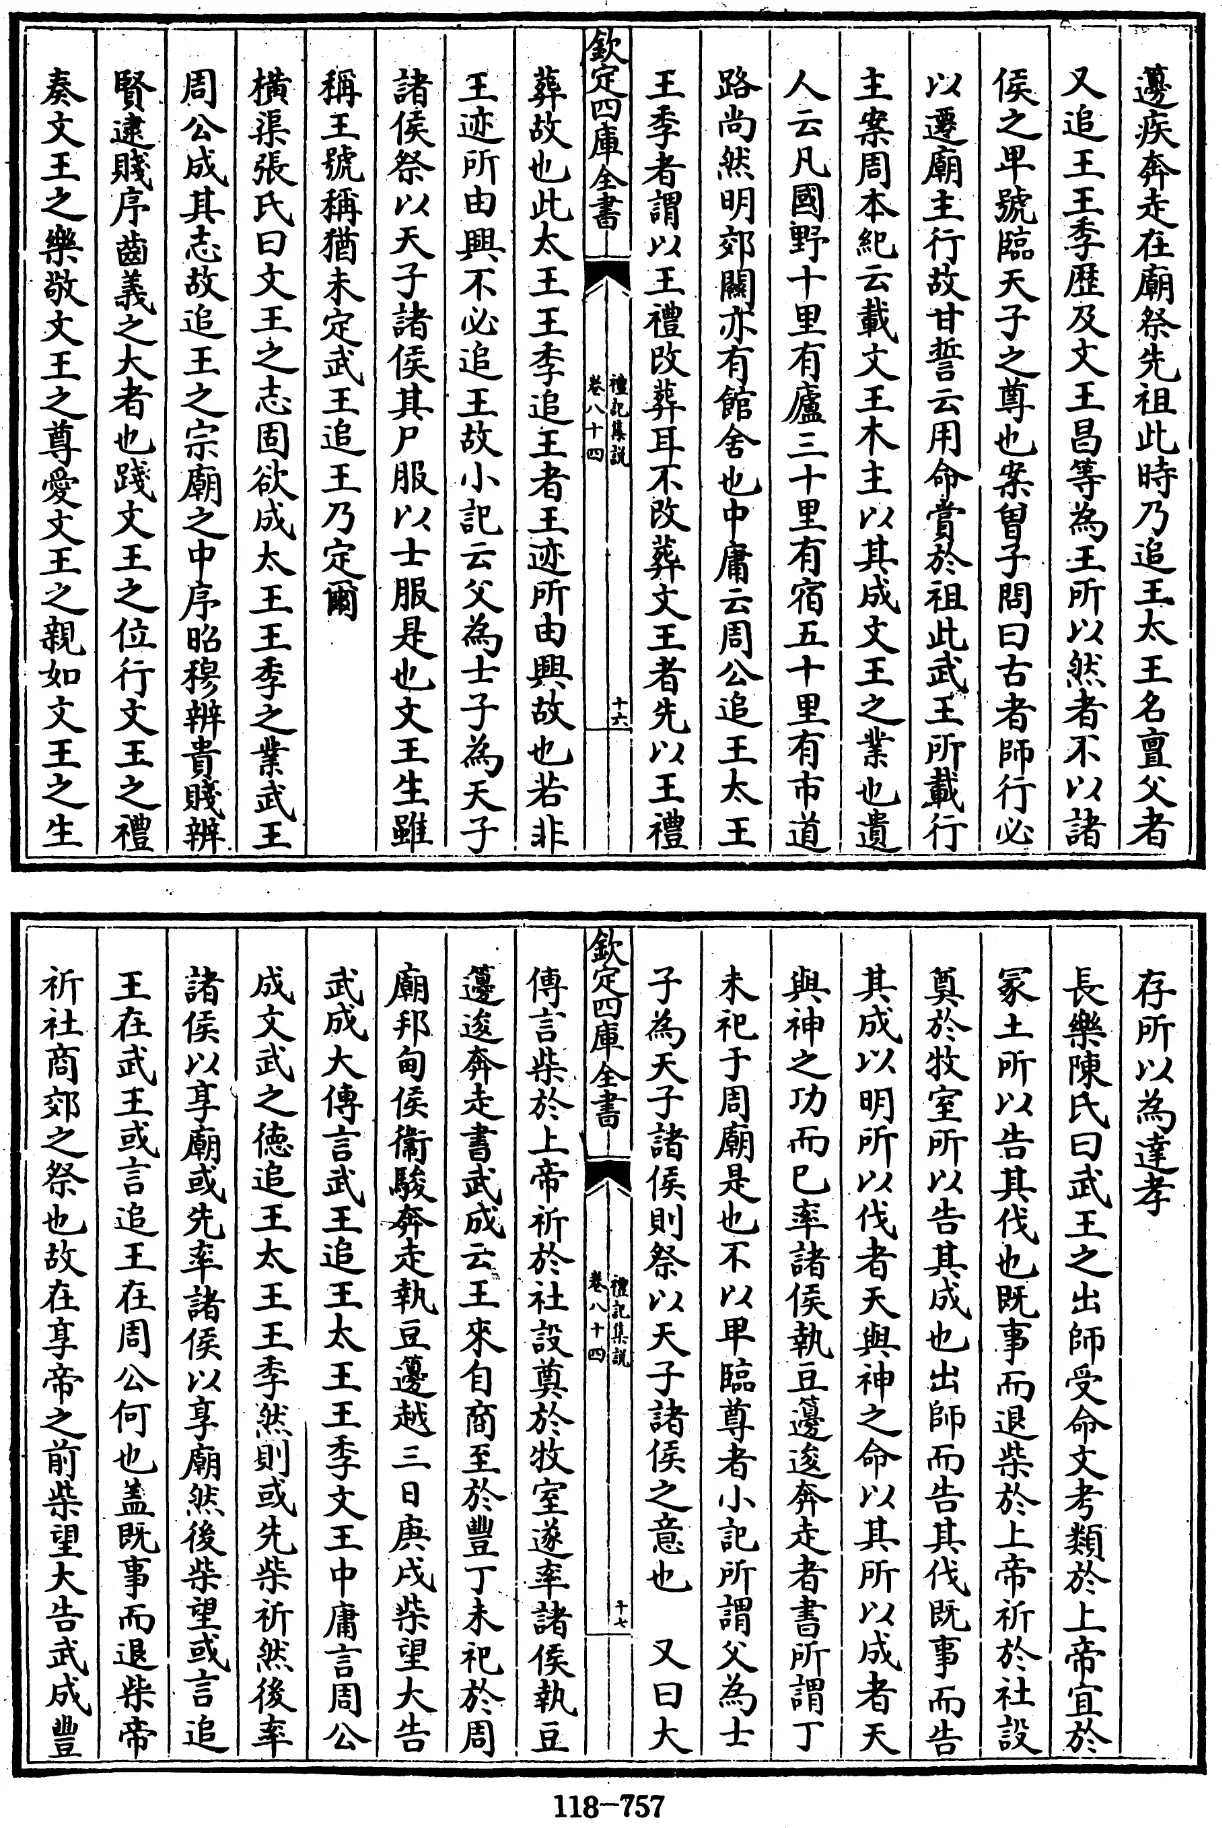 籩疾奔走在廟祭先祖此時乃追王太王名亶父者
又追王王季歴及文王昌等為王所以然者不以諸
侯之卑號臨天子之尊也案曽子問曰古者師行必
以遷廟主行故甘誓云用命賞於祖此武王所載行
主案周本紀云載文王木主以其成文王之業也遺
人云凡國野十里有廬三十里有宿五十里有市道
路尚然明郊關亦有館舍也中庸云周公追王太王
王季者謂以王禮改葬耳不改葬文王者先以王禮
欽定四庫全書
禮記集説
卷八十四
十六
葬故也此太王王季追王者王迹所由興故也若非
王迹所由興不必追王故小記云父為士子為天子
諸侯祭以天子諸侯其尸服以士服是也文王生雖
稱王號稱猶未定武王追王乃定爾
橫渠張氏曰文王之志固欲成太王王季之業武王
周公成其志故追王之宗廟之中序昭穆辨貴賤辨
賢逮賤序齒義之大者也踐文王之位行文王之禮
奏文王之樂敬文王之尊愛文王之親如文王之生
存所以為達孝
長樂陳氏曰武王之出師受命文考類於上帝宜於
冢土所以告其伐也既事而退柴於上帝祈於社設
奠於牧室所以告其成也出師而告其伐既事而告
其成以明所以伐者天與神之命以其所以成者天
與神之功而已率諸侯執豆籩逡奔走者書所謂丁
未祀于周廟是也不以卑臨尊者小記所謂父為士
子為天子諸侯則祭以天子諸侯之意也　又曰大
欽定四庫全書
禮記集説
卷八十四
十七
傳言柴於上帝祈於社設奠於牧室遂率諸侯執豆
籩逡奔走書武成云王來自商至於豐丁未祀於周
廟邦甸侯衛駿奔走執豆籩越三日庚戌柴望大告
武成大傳言武王追王太王王季文王中庸言周公
成文武之德追王太王王季然則或先柴祈然後率
諸侯以享廟或先率諸侯以享廟然後柴望或言追
王在武王或言追王在周公何也蓋既事而退柴帝
祈社商郊之祭也故在享帝之前柴望大告武成豐
118-757